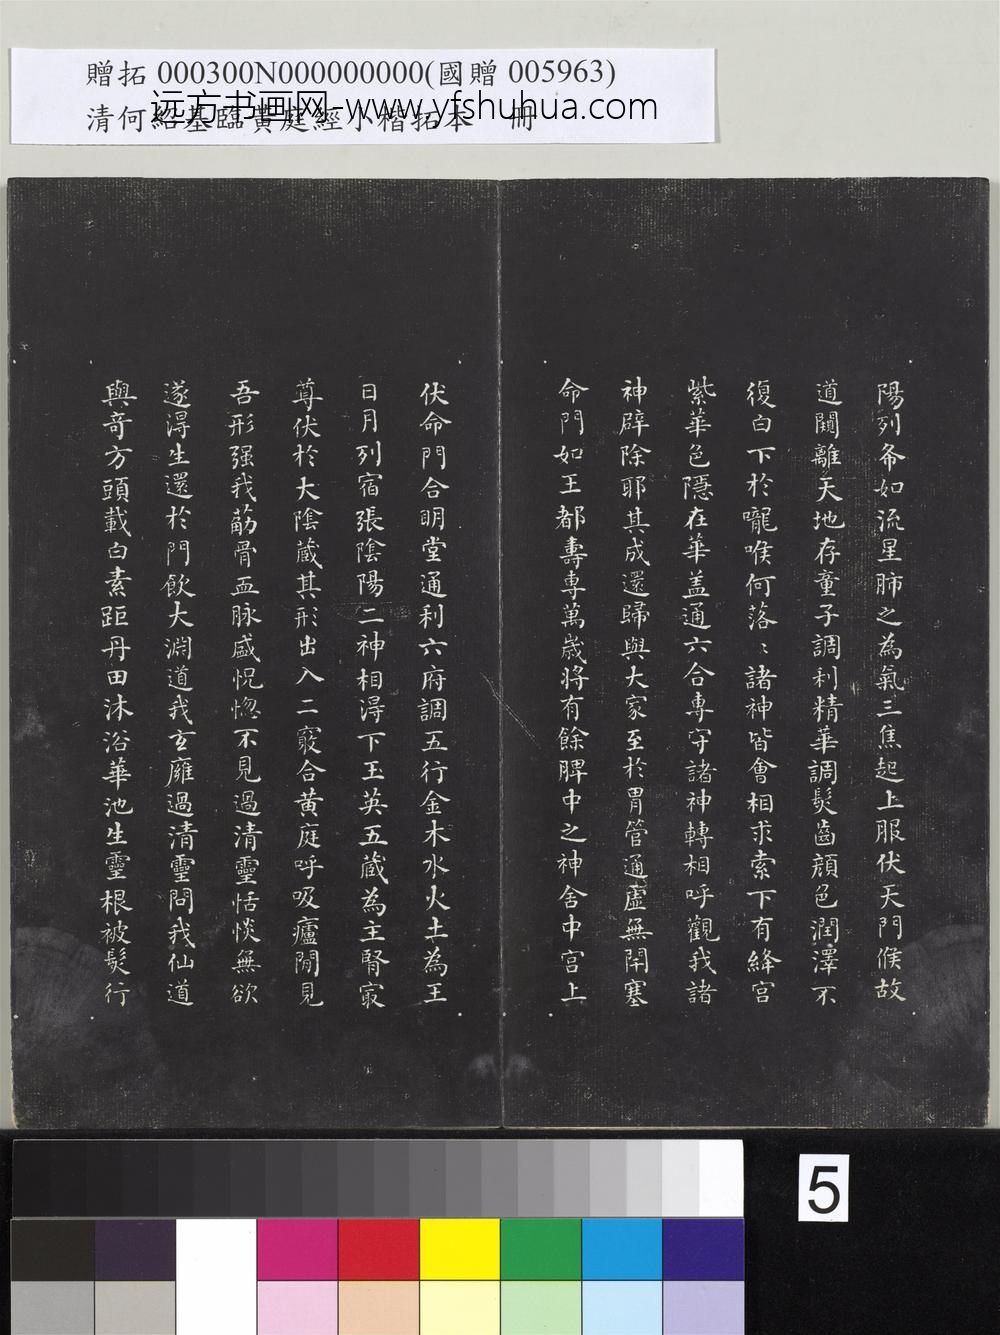 贈拓 000300N000000000(國贈 005963)
清何紹基臨黃庭經小楷拓本 冊
远方书画网-www.yfshuhua.com
陽列布如流星肺之為氣三焦起上服伏天門候故
道闚離天地存童子調利精華調髮齒顏色潤澤不
復白下於嚨喉何落〻諸神皆會相求索下有絳宮
紫華色隱在華盖通六合專守諸神轉相呼觀我諸
神辟除耶其成還歸與大家至於胃管通虛無閉塞
命門如王都壽專萬歲將有餘脾中之神舍中宮上
伏命門合明堂通利六府調五行金木水火土為王
日月列宿張陰陽二神相得下玉英五藏為主腎寂
尊伏於大陰藏其形出入二竅合黄庭呼吸廬間見
吾形强我筋骨血脉盛怳惚不見過清靈恬惔無欲
遂得生還於門飲大淵道我玄廱過清靈問我仙道
與奇方頭載白素距丹田沐浴華池生靈根被髮行
5